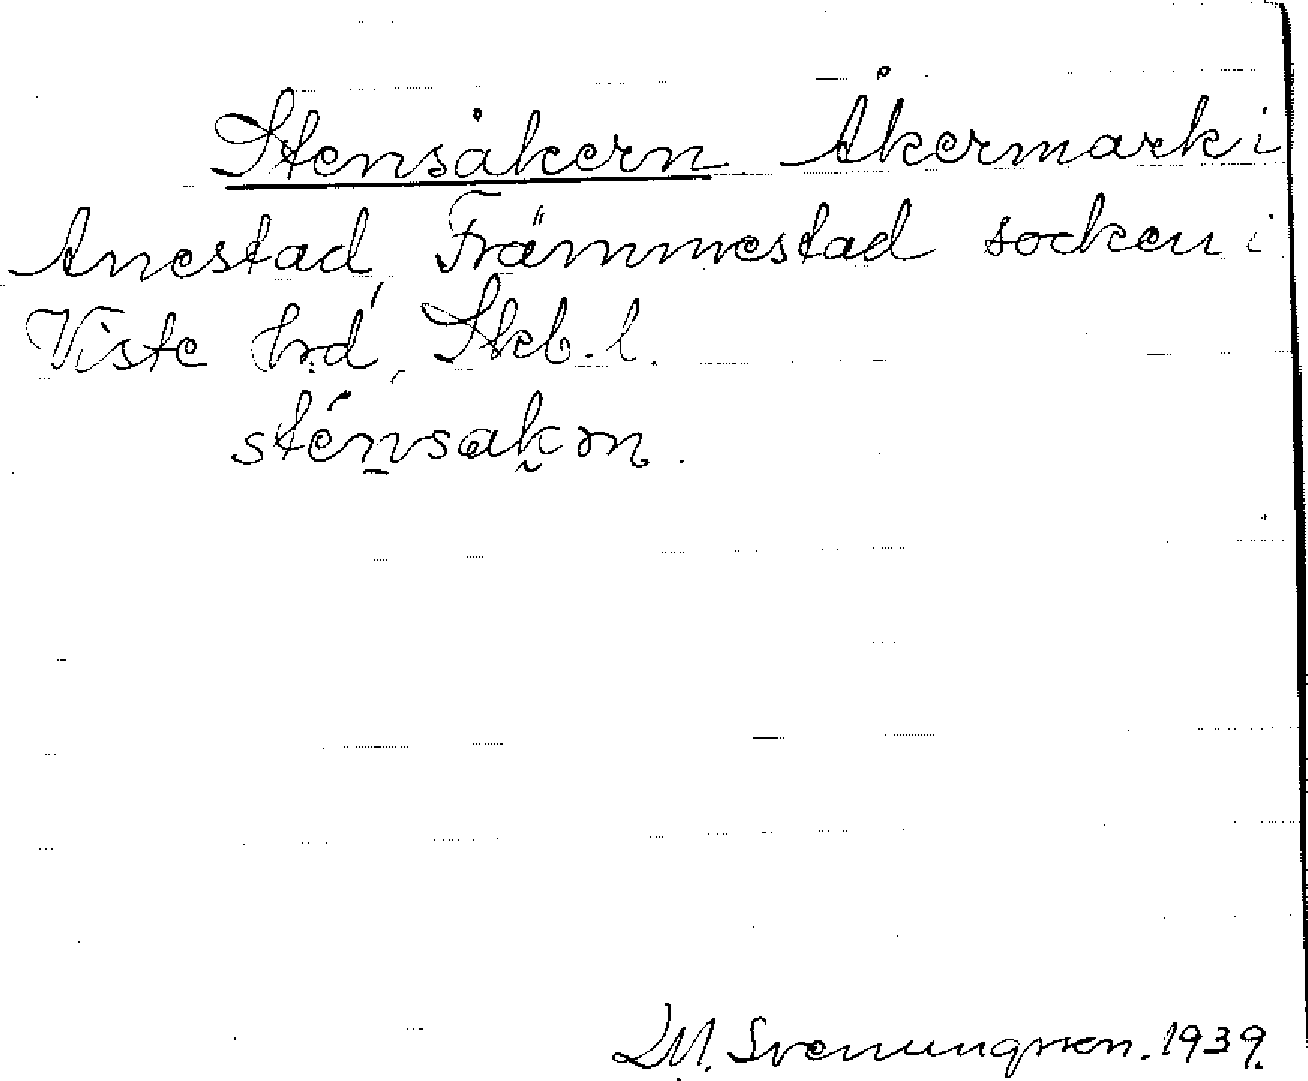 Stensåkern Åkermark i
Anestad, Främmestad socken i
Viste hrd, Skb. l.
sténsakən.
M. Svenungsson. 1939.